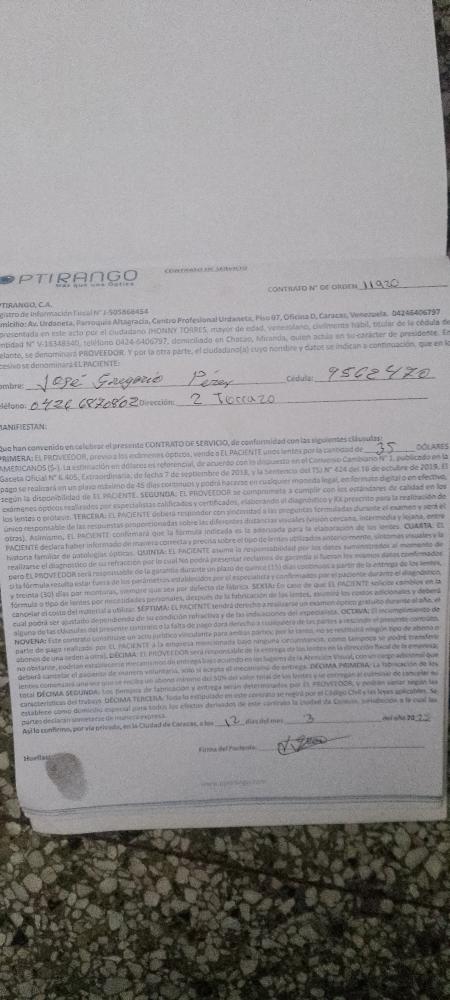 OPTIRANGO
Más que una Óptica
CONTRATO DE SERVICIO
CONTRATO N° DE ORDEN 11920
PTIRANGO, C.A.
egistro de Información Fiscal N° J-505868454
micilio: Av. Urdaneta, Parroquia Altagracia, Centro Profesional Urdaneta, Piso 07, Oficina D, Caracas, Venezuela. 04246406797
presentada en este acto por el ciudadano JHONNY TORRES, mayor de edad, venezolano, civilmente hábil, titular de la cédula de
entidad N° V-16348340, teléfono 0424-6406797, domiciliado en Chacao, Miranda, quien actúa en su carácter de presidente. En
elante, se denominará PROVEEDOR. Y por la otra parte, el ciudadano(a) cuyo nombre y datos se indican a continuación, que en lo
cesivo se denominará EL PACIENTE:
ombre: José Gregorio Pérez Cédula: 9562470
eléfono: 0426 6870802 Dirección: 2 Terrazo
MANIFIESTAN:
Que han convenido en celebrar el presente CONTRATO DE SERVICIO, de conformidad con las siguientes cláusulas:
PRIMERA: EL PROVEEDOR, previo a los exámenes ópticos, vende a EL PACIENTE unos lentes por la cantidad de 35 DÓLARES
AMERICANOS ($-). La estimación en dólares es referencial, de acuerdo con lo dispuesto en el Convenio Cambiario N° 1, publicado en la
Gaceta Oficial N° 6.405, Extraordinaria, de fecha 7 de septiembre de 2018, y la Sentencia del TSJ N° 424 del 16 de octubre de 2019. El
pago se realizará en un plazo máximo de 45 días continuos y podrá hacerse en cualquier moneda legal, en formato digital o en efectivo,
según la disponibilidad de EL PACIENTE. SEGUNDA: EL PROVEEDOR se compromete a cumplir con los estándares de calidad en los
exámenes ópticos realizados por especialistas calificados y certificados, elaborando el diagnóstico y RX prescrito para la realización de
los lentes o protesis. TERCERA: EL PACIENTE deberá responder con sinceridad a las preguntas formuladas durante el examen y será el
único responsable de las respuestas proporcionadas sobre las diferentes distancias visuales (visión cercana, intermedia y lejana, entre
otras). Asimismo, EL PACIENTE confirmará que la fórmula indicada es la adecuada para la elaboración de los lentes. CUARTA: EL
PACIENTE declara haber informado de manera correcta y precisa sobre el tipo de lentes utilizados anteriormente, síntomas visuales y la
historia familiar de patologías ópticas. QUINTA: EL PACIENTE asume la responsabilidad por los datos suministrados al momento de
realizarse el diagnóstico de su refracción por lo cual No podrá presentar reclamos de garantía si fueron los mismos datos confirmados
pero EL PROVEEDOR será responsable de la garantía durante un plazo de quince (15) días continuos a partir de la entrega de los lentes,
si la fórmula resulta estar fuera de los parámetros establecidos por el especialista y confirmados por el paciente durante el diagnóstico,
y treinta (30) días por monturas, siempre que sea por defecto de fábrica. SEXTA: En caso de que EL PACIENTE solicite cambios en la
fórmula o tipo de lentes por necesidades personales, después de la fabricación de los lentes, asumirá los costos adicionales y deberá
cancelar el costo del material a utilizar. SÉPTIMA: EL PACIENTE tendrá derecho a realizarse un examen óptico gratuito durante el año, el
cual podrá ser ajustado dependiendo de su condición refractiva y de las indicaciones del especialista. OCTAVA: El incumplimiento de
alguna de las cláusulas del presente contrato o la falta de pago dará derecho a cualquiera de las partes a rescindir el presente contrato.
NOVENA: Este contrato constituye un acto jurídico vinculante para ambas partes; por lo tanto, no se reembolsará ningún tipo de abono o
parte de pago realizado por EL PACIENTE a la empresa mencionada bajo ninguna circunstancia, como tampoco se podrá transferir
abonos de una orden a otra). DÉCIMA: EL PROVEEDOR será responsable de la entrega de los lentes en la dirección fiscal de la empresa;
total DÉCIMA SEGUNDA: Los tiempos de fabricación y entrega serán determinados por EL PROVEEDOR, y podrán variar según las
características del trabajo. DÉCIMA TERCERA: Todo lo estipulado en este contrato se regirá por el Código Civil y las leyes aplicables. Se
establece como domicilio especial para todos los efectos derivados de este contrato la ciudad de Caracas, jurisdicción a la cual las
partes declaran someterse de manera expresa.
Así lo confirmo, por vía privada, en la Ciudad de Caracas, a los 12 días del mes 3 del año 2025
Firma del Paciente:
Huellas:
www.optirango.com